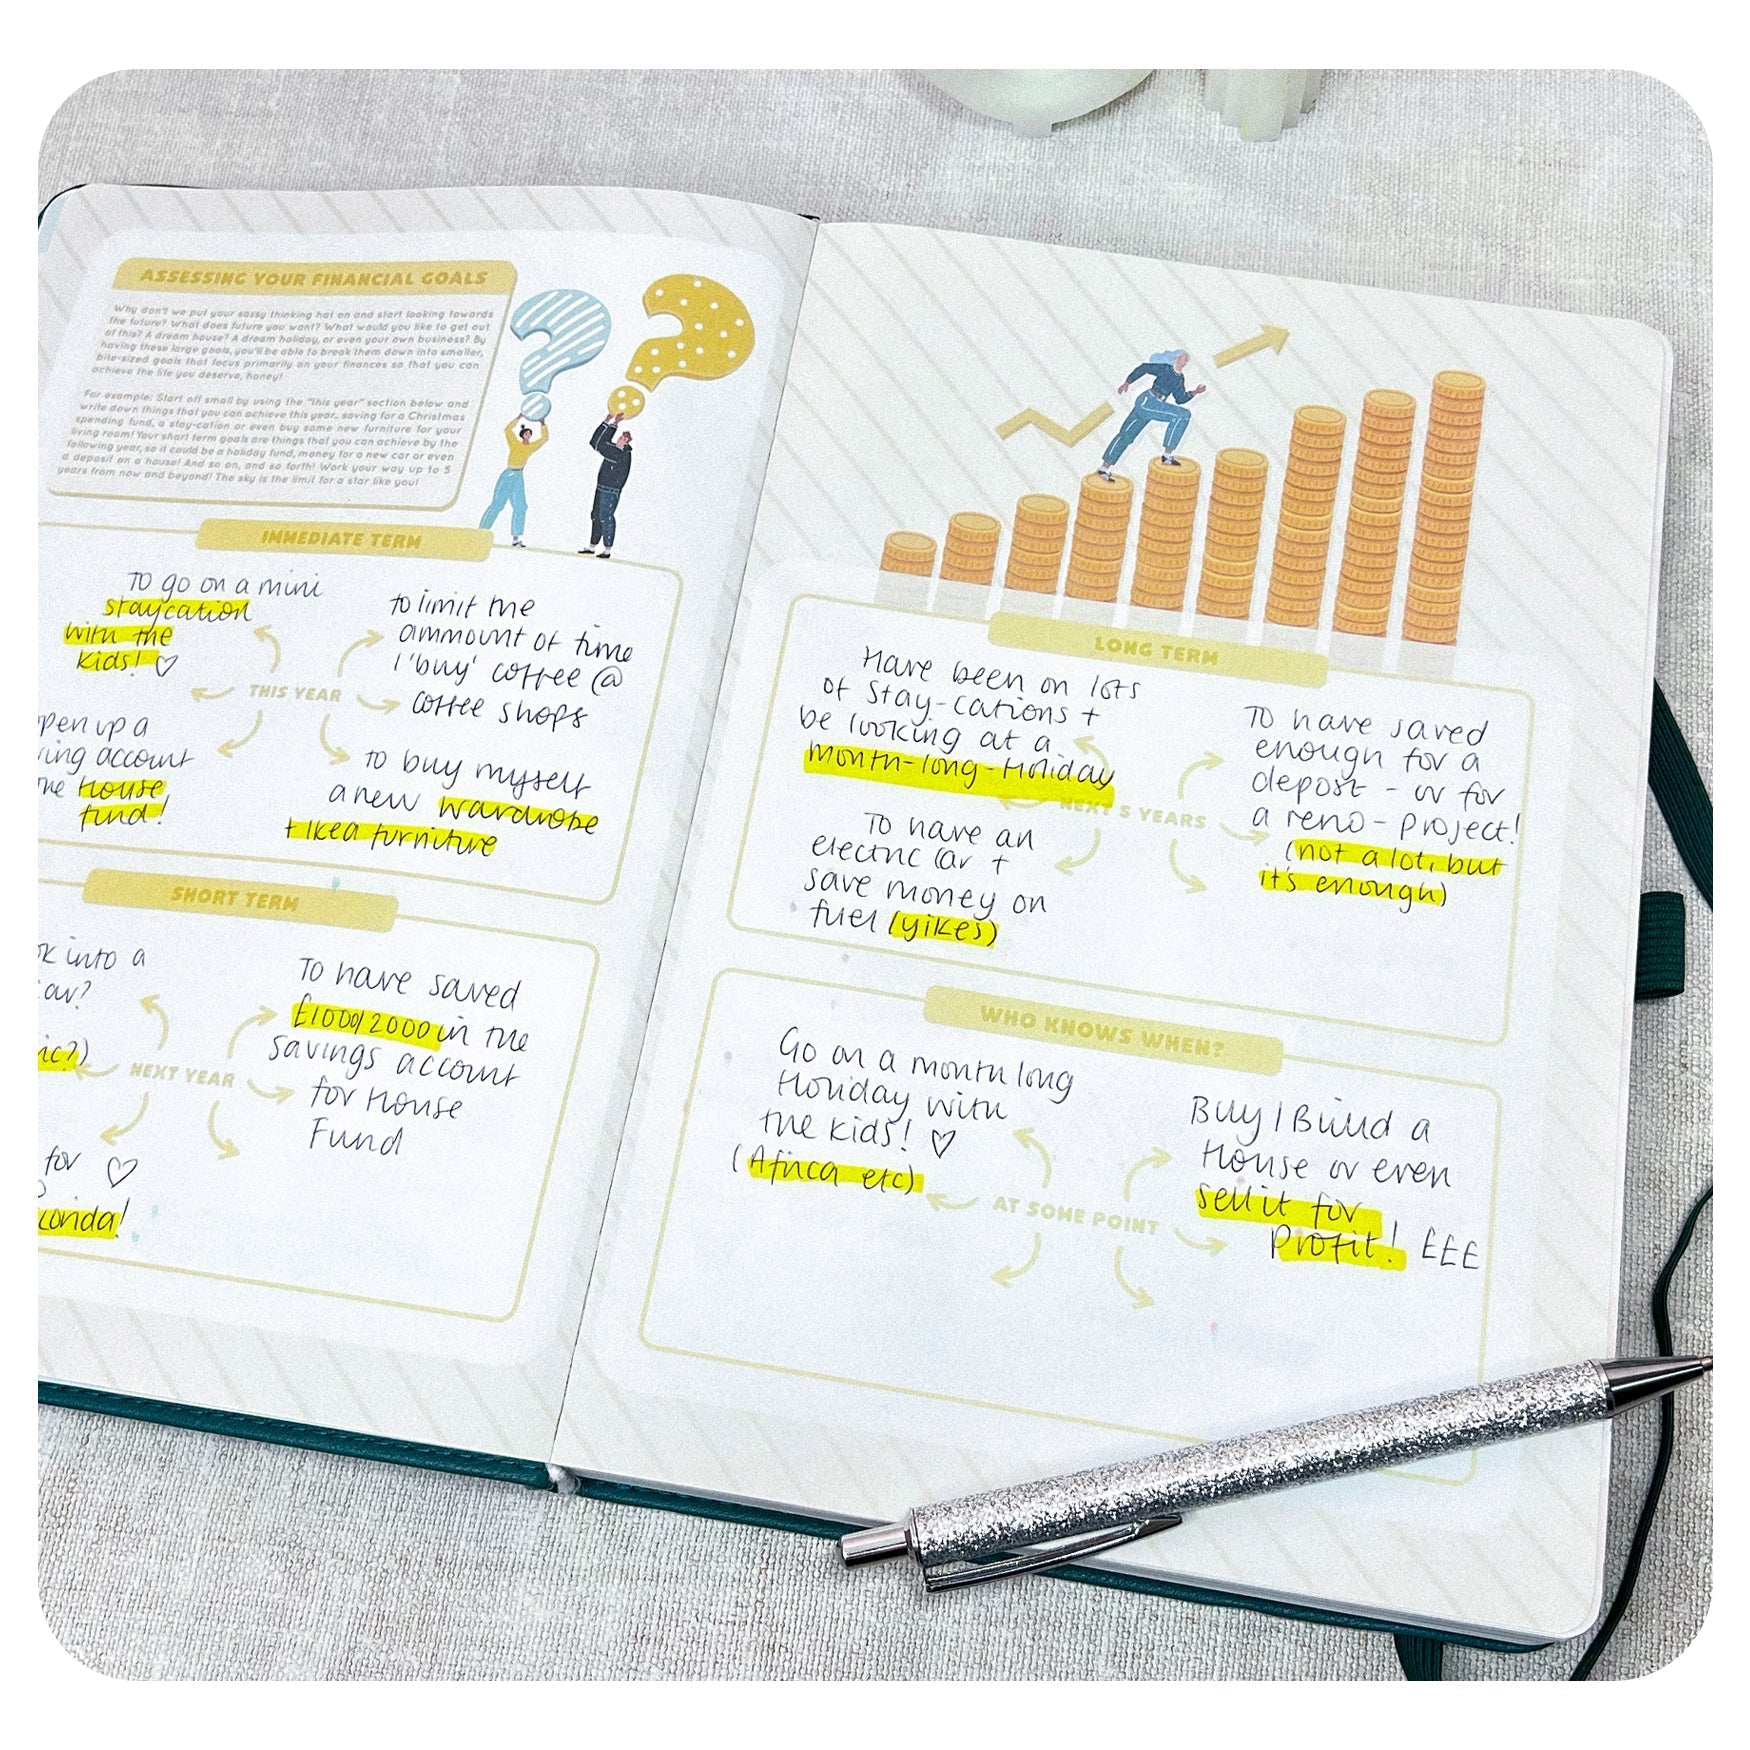 ASSESSING YOUR FINANCIAL GOALS
Why don't we put your sassy thinking hat on and start looking towards
the future? What does future you want? What would you like to get out
of this? A dream house? A dream holiday, or even your own business? By
having these large goals, you'll be able to break them down into smaller,
bite-sized goals that focus primarily on your finances so that you can
achieve the life you deserve, honey!
For example: Start off small by using the "this year" section below and
write down things that you can achieve this year.. saving for a Christmas
spending fund, a stay-cation or even buy some new furniture for your
living room! Your short term goals are things that you can achieve by the
following year, so it could be a holiday fund, money for a new car or even
a deposit on a house! And so on, and so forth! Work your way up to 5
years from now and beyond! The sky is the limit for a star like you!
IMMEDIATE TERM
To go on a mini
staycation
with the
kids! ♡
to limit the
ammount of time
I 'buy' coffee @
coffee shops
THIS YEAR
pen up a
ving account
House
fund!
to buy myself
a new wardrobe
+ Ikea furniture
SHORT TERM
into a
?
ic?)
To have saved
£1000/2000 in the
savings account
for House
Fund
NEXT YEAR
for ♡
!
LONG TERM
Have been on lots
of stay-cations +
be looking at a
month-long-Holiday
To have saved
enough for a
depost - or for
a reno-project!
(not a lot, but
it's enough)
NEXT 5 YEARS
To have an
electric car +
save money on
fuel (yikes)
WHO KNOWS WHEN?
Go on a month long
Holiday with
the kids! ♡
(Africa etc)
Buy/Build a
House or even
sell it for
Profit! £££
AT SOME POINT